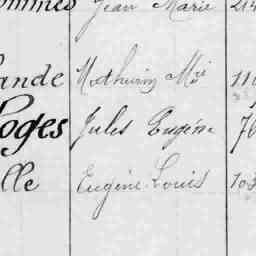 ommes Jean Marie 214
ande Mathurin Mie 110
loges Jules Eugène 76
lle Eugène Louis 103